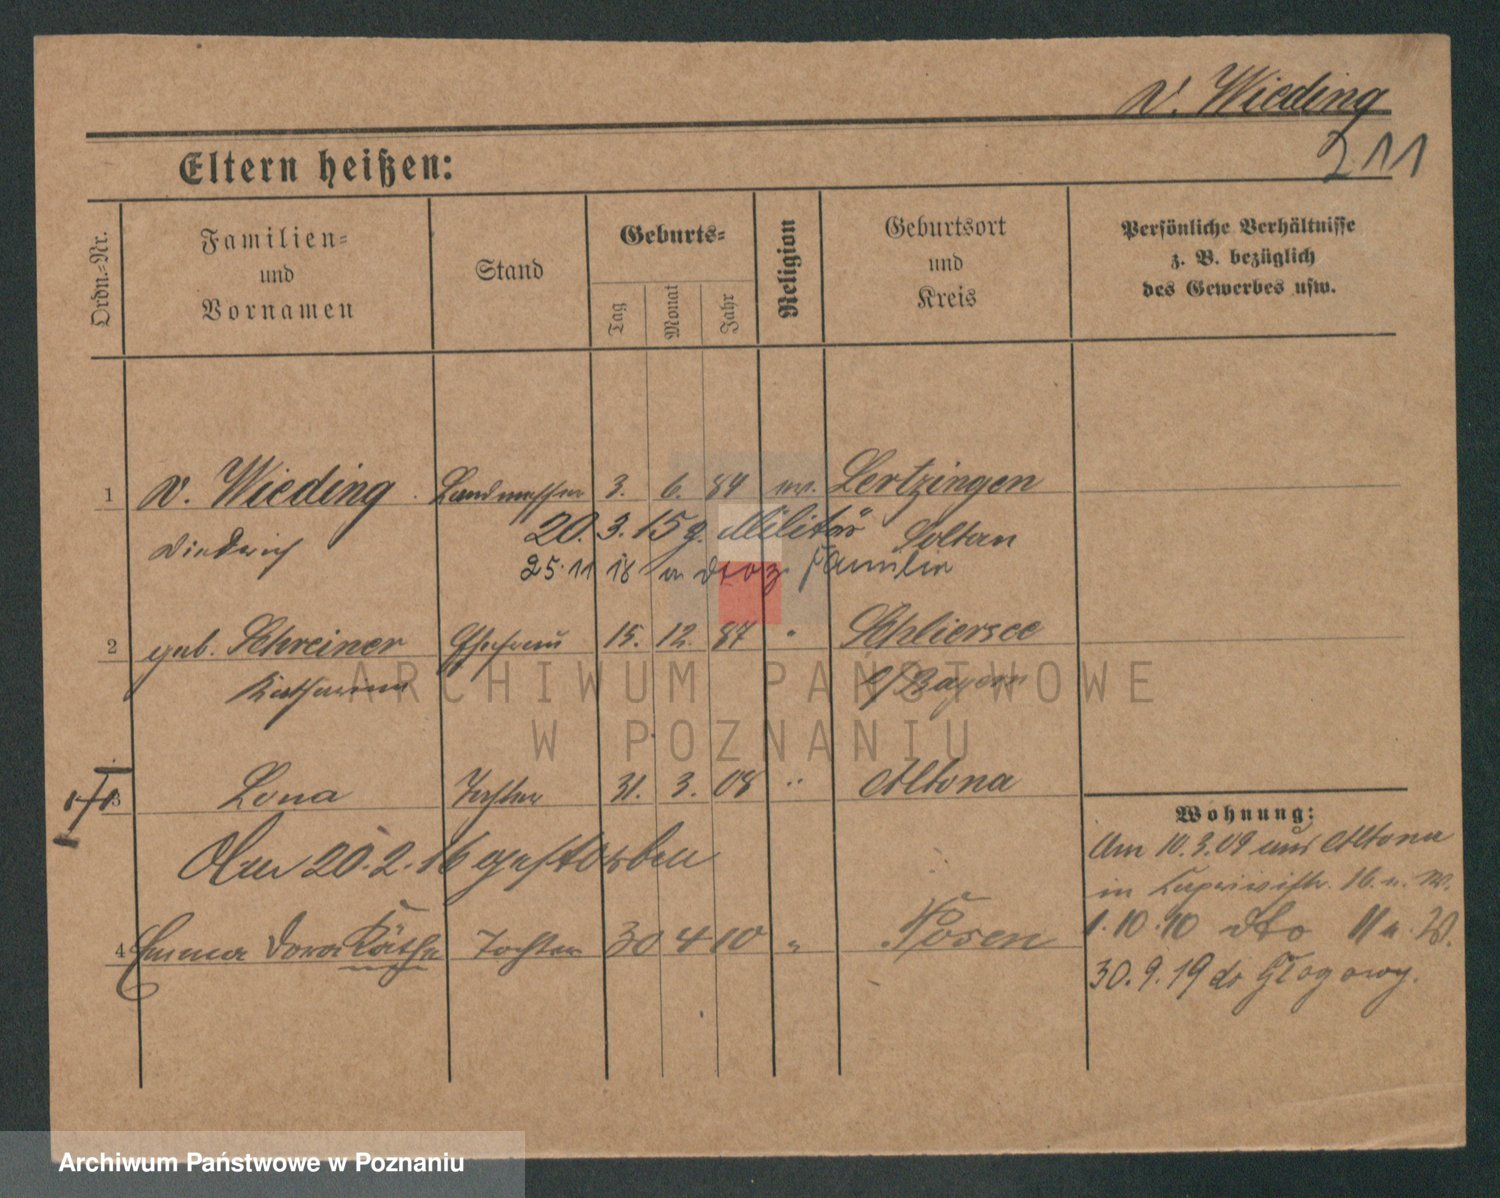 v. Wieding
211
Eltern heißen:
Ordn.-Nr.
Familien-
und
Vornamen
Stand
Geburts-
Tag
Monat
Jahr
Religion
Geburtsort
und
Kreis
Persönliche Verhältnisse
z. B. bezüglich
des Gewerbes usw.
1 v. Wieding Landmesser 3. 6. 84 ev. Lertzingen
Diedrich
20. 3. 15 z. Militär Soltau
25. 11 18 v dto z. Familie
2 geb. Schreiner Ehefrau 15. 12. 87 " Schliersee
Katharina
i/Bayern
3 Lona Tochter 31. 3. 08 " Altona
Am 20. 2. 16 gestorben
4 Emma Dora Käthe Tochter 30 4 10 " Posen
Wohnung:
Am 10. 3. 09 aus Altona
in Caprivistr. 16. u. W.
1. 10. 10 dto 11 u. W.
30. 9. 19 do Glogowy.
ARCHIWUM PAŃSTWOWE
W POZNANIU
Archiwum Państwowe w Poznaniu